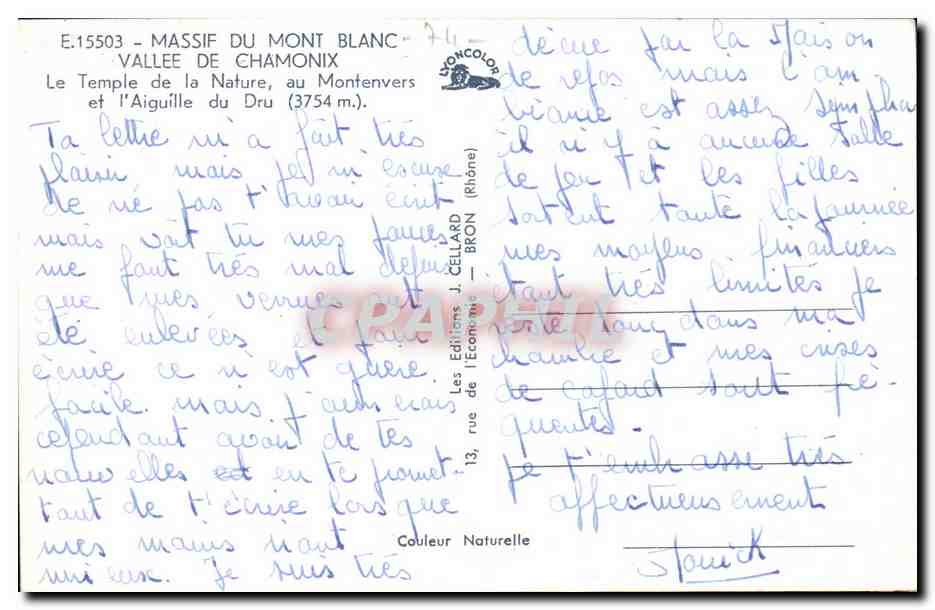 E.15503 - MASSIF DU MONT BLANC
VALLEE DE CHAMONIX
Le Temple de la Nature, au Montenvers
et l'Aiguille du Dru (3754 m.).
Ta lettre m'a fait très
plaisir mais je m'escuse
de ne pas t'avoir écrit
mais voit tu mes
me font très mal depuis
que mes verrues ont
été enlevées et pour
écrire ce n'est guère
facile. mais j'aimerais
cependant avoir de tes
nouvelles en te promet-
tant de t'écrire lorsque
mes mains iront
mieux. Je suis très
74
LYONCOLOR
Les Editions J. CELLARD
13, rue de l'Economie — BRON (Rhône)
Couleur Naturelle
CPAPHIL
déçue par la Maison
de repos mais l'am
biance est assez sympha
il n'y à aucune salle
de jeu et les filles
sortent toute la journée
mes moyens financiers
étant très limités je
reste donc dans ma
chambre et mes crises
de cafard sont fré-
quentes.
Je t'embrasse très
affectueusement